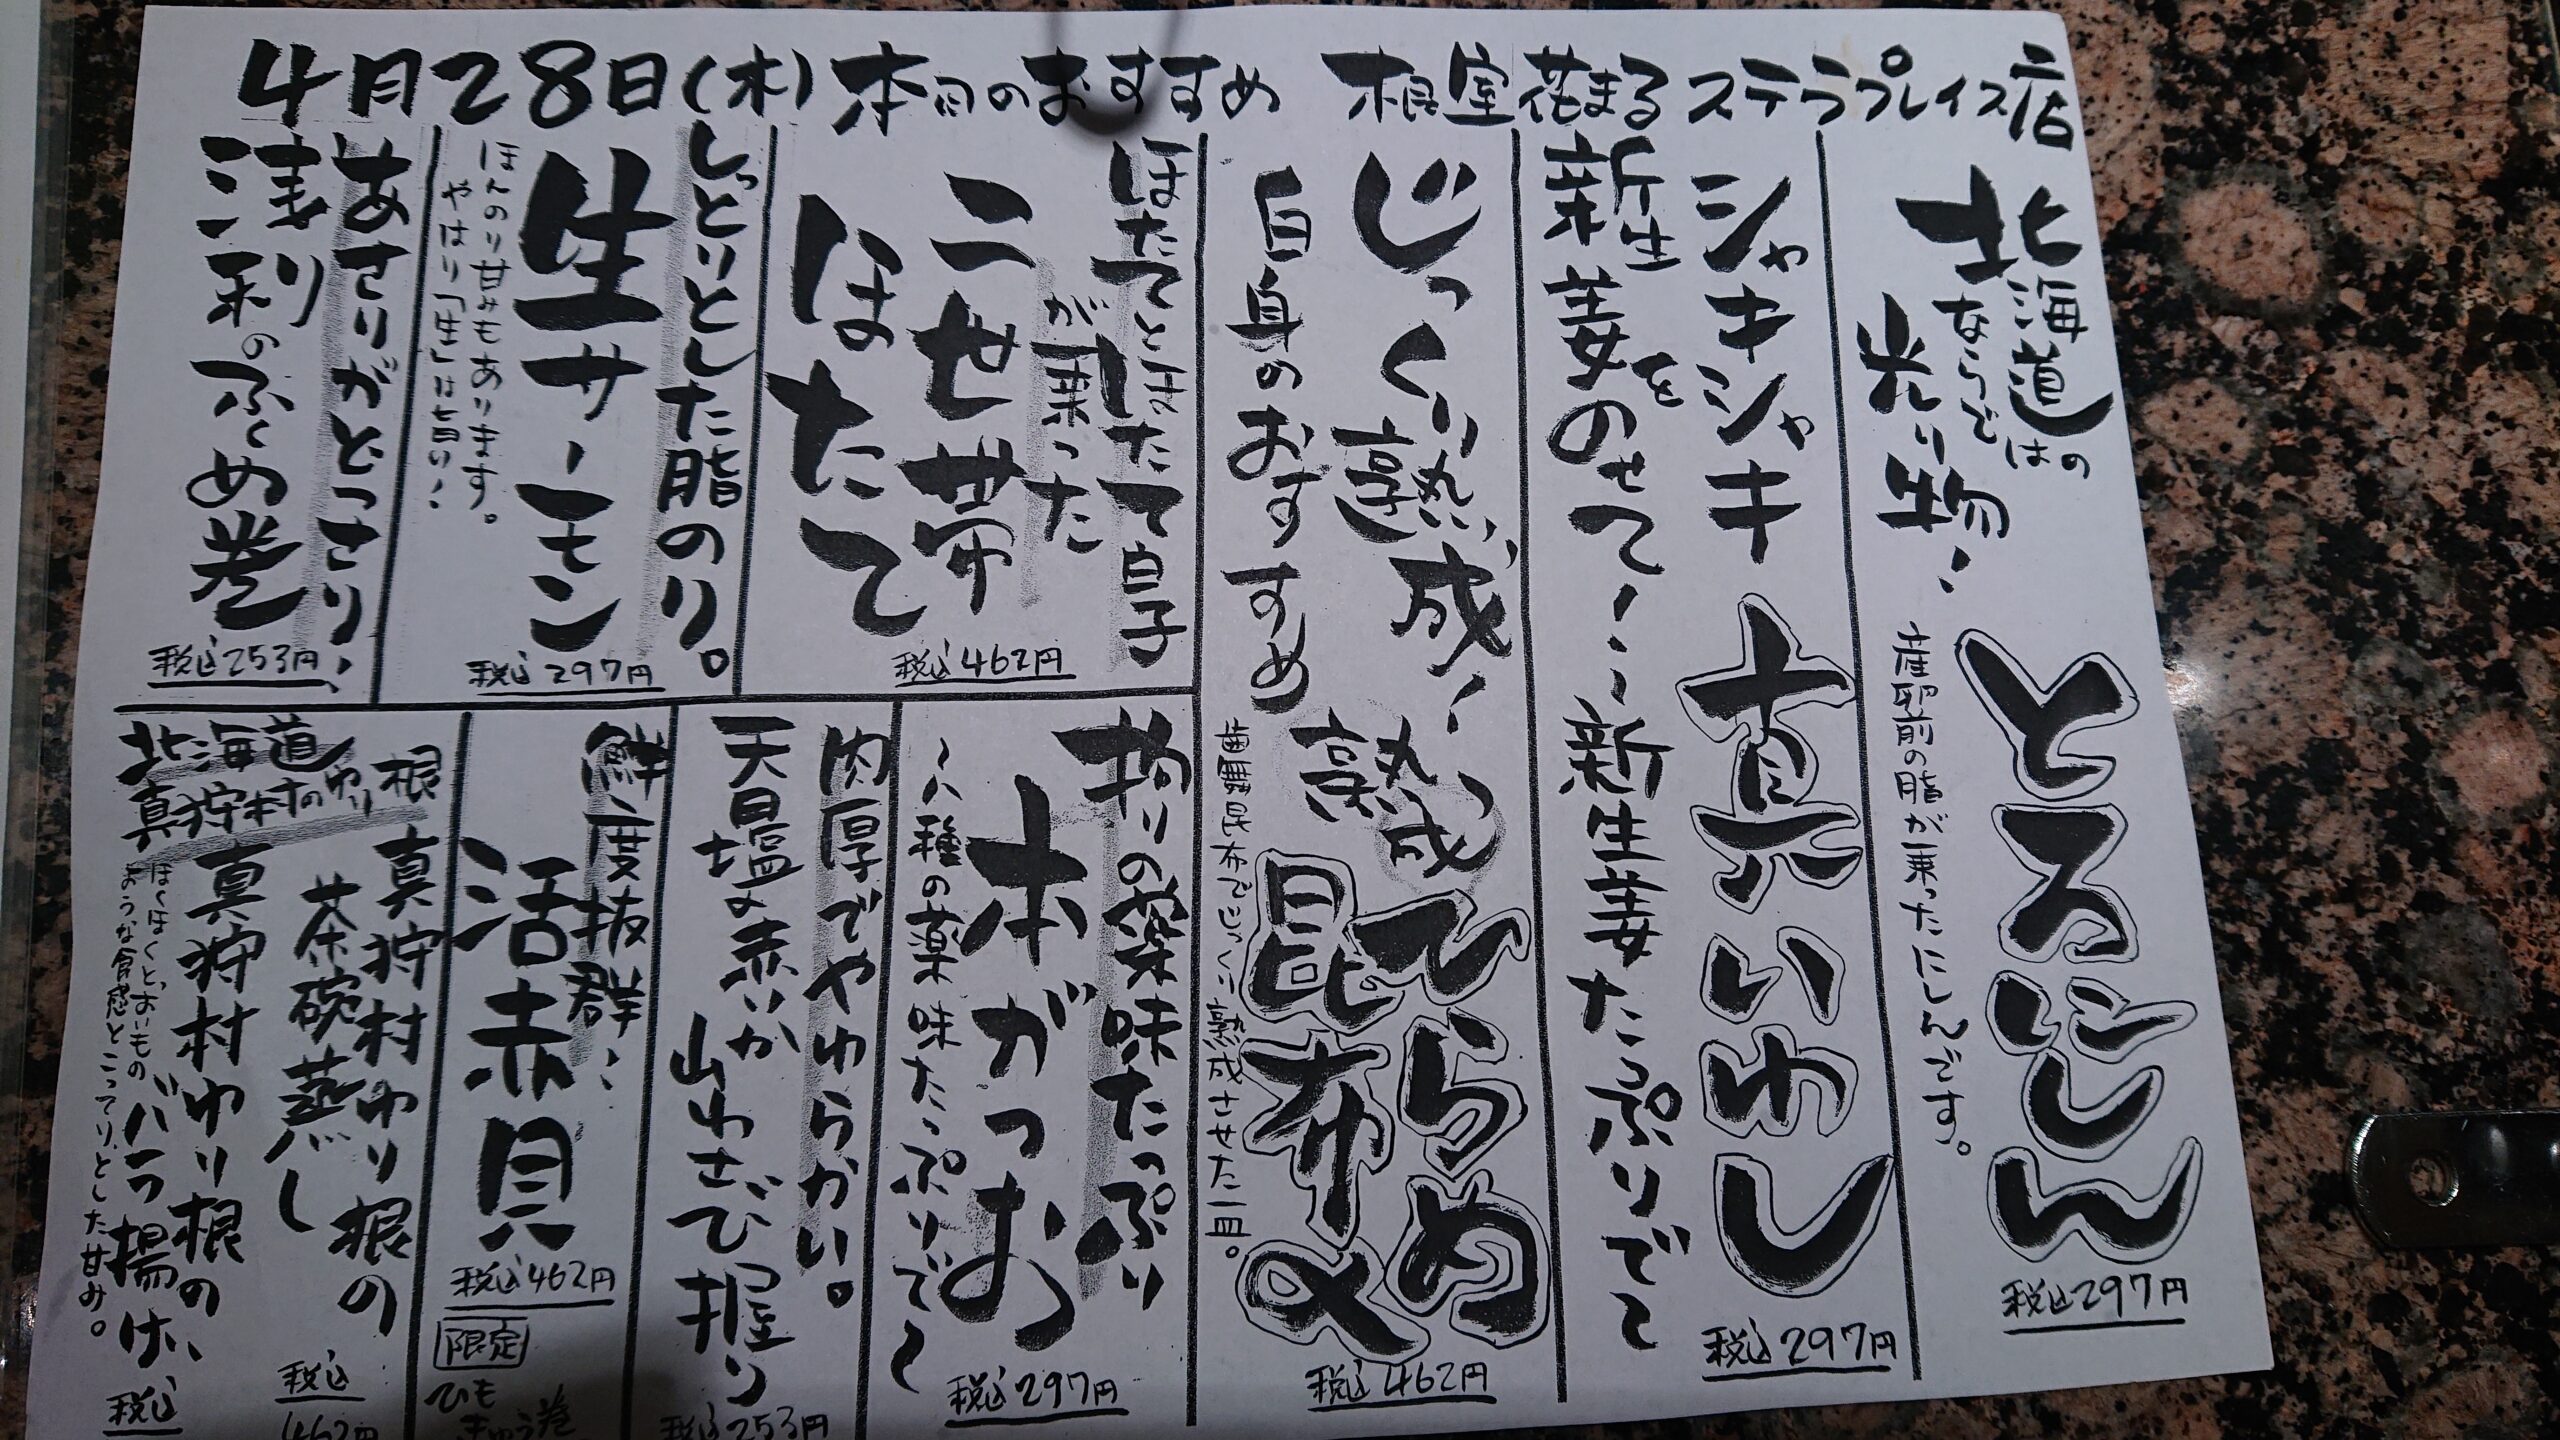 4月28日(木)本日のおすすめ 根室花まる ステラプレイス店
北海道の
ならでは
光り物!
とろにしん
産卵前の脂が乗ったにしんです。
税込297円
シャキシャキ
新生姜を
のせて!!
真いわし
新生姜たっぷりで〜
税込297円
じっくり熟成!
白身のおすすめ
熟成ひらめ
昆布〆
歯舞昆布でじっくり熟成させた一皿。
税込462円
ほたてとほたて白子
が乗った
二世帯
ほたて
税込462円
しっとりとした脂のり。
生サーモン
ほんのり甘みもあります。
やはり「生」は旨い!
税込297円
あさりがどっさり!
浅利のふくめ巻
税込253円
拘りの薬味たっぷり
本がつお
〜八種の薬味たっぷりで〜
税込297円
肉厚でやわらかい。
天日塩の赤いか
山わさび握り
税込253円
鮮度抜群!
活赤貝
税込462円
限定
ひも
きゅう巻
北海道
真狩村のゆり根
真狩村ゆり根の
茶碗蒸し
税込
462円
真狩村ゆり根の
バラ揚げ
ほくほくと、おいもの
ような食感とこってりとした甘み。
税込